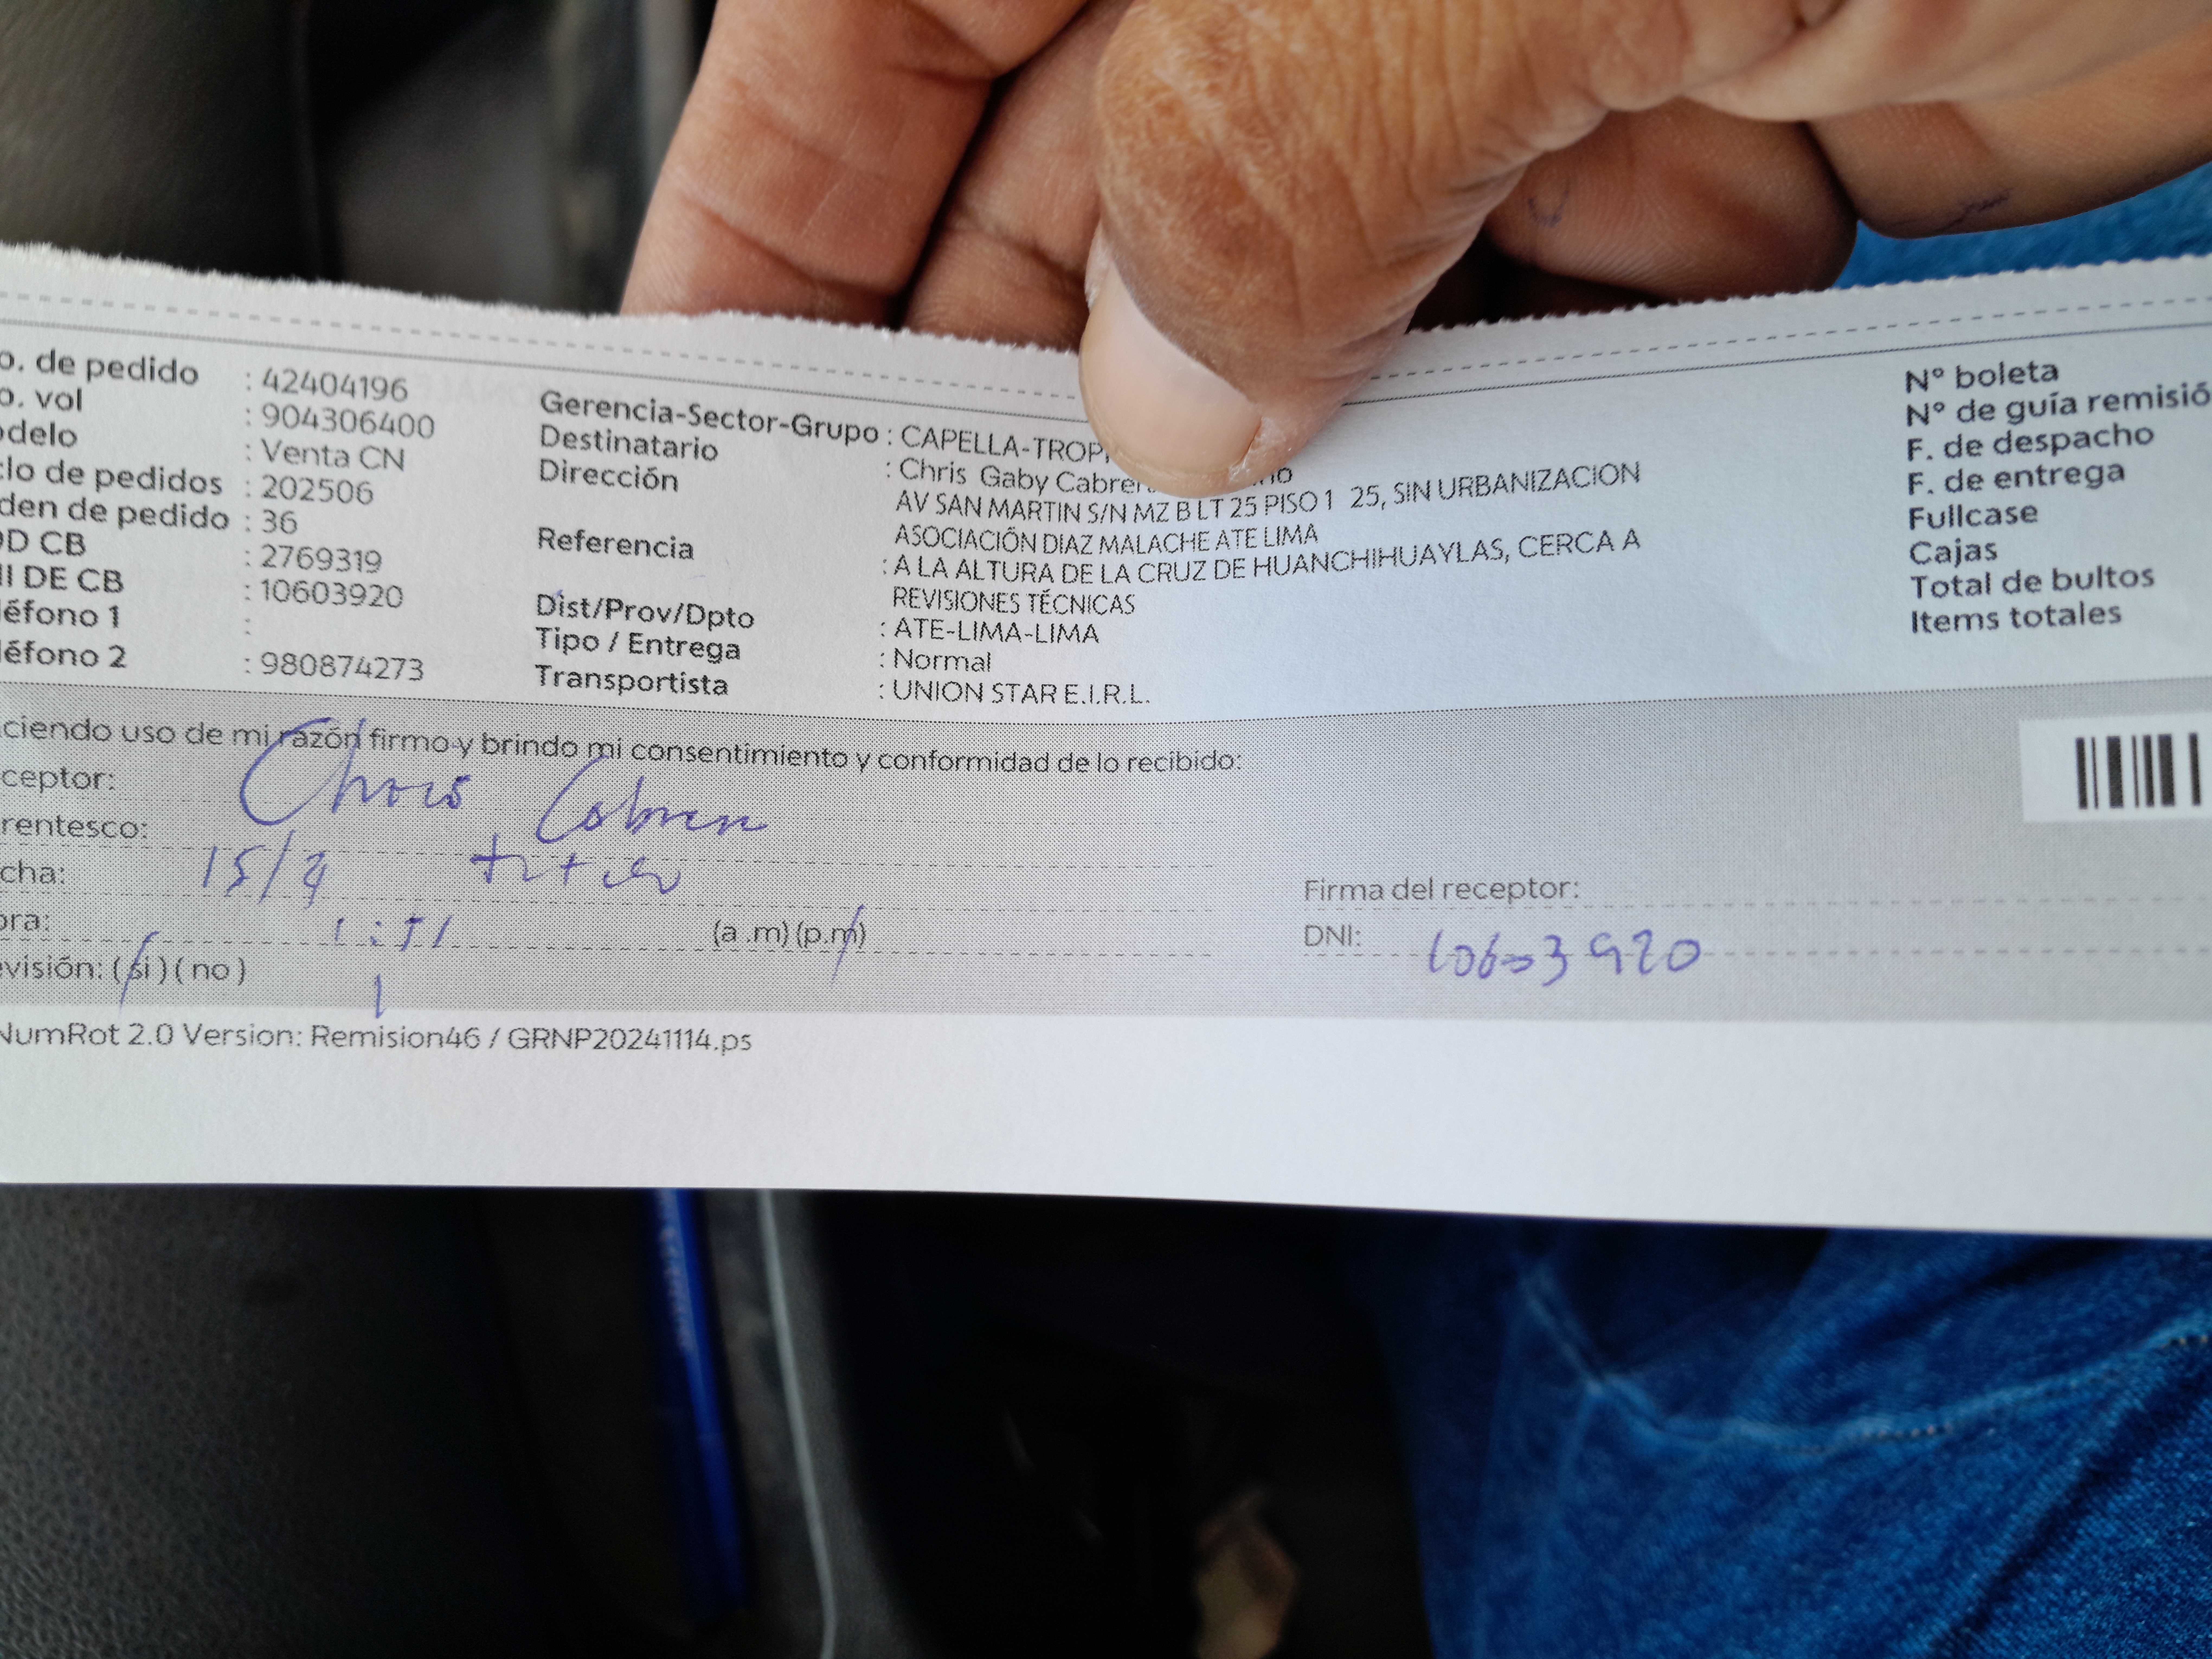 o. de pedido : 42404196
o. vol : 904306400
odelo : Venta CN
clo de pedidos : 202506
den de pedido : 36
OD CB : 2769319
NI DE CB : 10603920
léfono 1 :
léfono 2 : 980874273
Gerencia-Sector-Grupo : CAPELLA-TROP
Destinatario : Chris Gaby Cabrer no
Dirección AV SAN MARTIN S/N MZ B LT 25 PISO 1 25, SIN URBANIZACION
ASOCIACIÓN DIAZ MALACHE ATE LIMA
Referencia : A LA ALTURA DE LA CRUZ DE HUANCHIHUAYLAS, CERCA A
REVISIONES TÉCNICAS
Dist/Prov/Dpto : ATE-LIMA-LIMA
Tipo / Entrega : Normal
Transportista : UNION STAR E.I.R.L.
N° boleta
N° de guía remisió
F. de despacho
F. de entrega
Fullcase
Cajas
Total de bultos
Items totales
ciendo uso de mi razón firmo y brindo mi consentimiento y conformidad de lo recibido:
ceptor: Chris Cabrera
rentesco:
cha: 15/4
ora: 1:51 (a .m) (p.m)
evisión: (si) (no) 1
Firma del receptor:
DNI: 10603920
NumRot 2.0 Version: Remision46 / GRNP20241114.ps